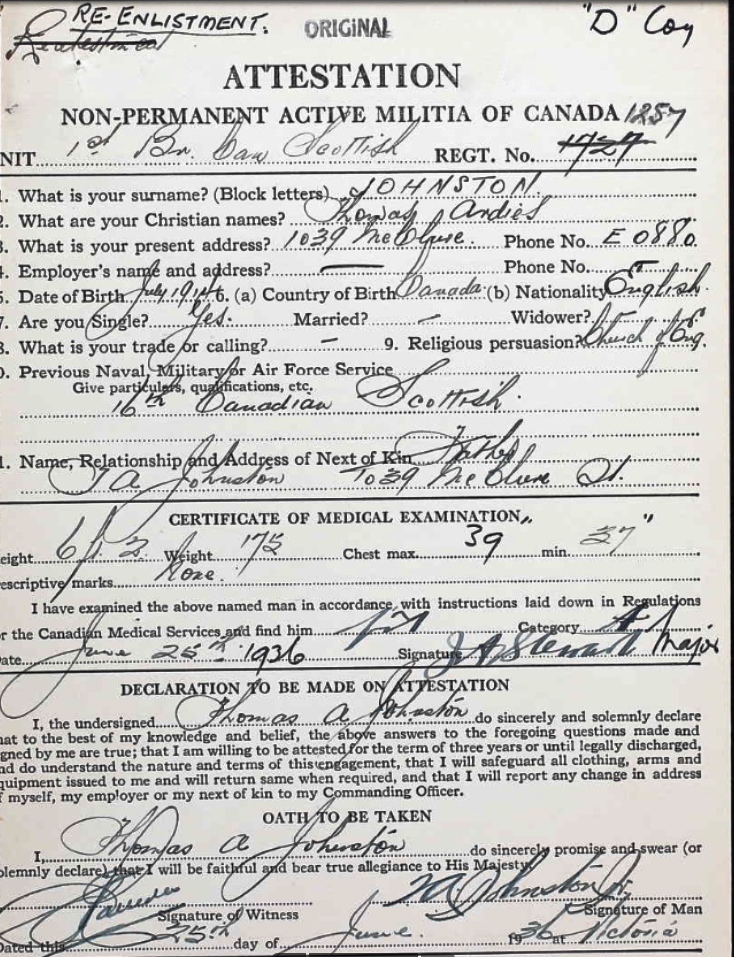 RE-ENLISTMENT. ORIGINAL "D" Coy
ATTESTATION
NON-PERMANENT ACTIVE MILITIA OF CANADA 1257
NIT 1st Bn. Can Scottish REGT. No. 1727
1. What is your surname? (Block letters) JOHNSTON.
2. What are your Christian names? Thomas
3. What is your present address? 1039 McClure. Phone No. E 0880
4. Employer's name and address? — Phone No. —
5. Date of Birth July 1914 6. (a) Country of Birth Canada (b) Nationality English
7. Are you Single? Yes. Married? — Widower? —
8. What is your trade or calling? — 9. Religious persuasion? Church of Eng.
0. Previous Naval, Military or Air Force Service
Give particulars, qualifications, etc.
16th Canadian Scottish.
1. Name, Relationship and Address of Next of Kin Father
T A Johnston 1039 McClure St.
CERTIFICATE OF MEDICAL EXAMINATION
eight 6 ft. 2 Weight 175 Chest max. 39 min. 37"
escriptive marks None.
I have examined the above named man in accordance with instructions laid down in Regulations
or the Canadian Medical Services and find him fit Category A
Date June 25th 1936 Signature Major
DECLARATION TO BE MADE ON ATTESTATION
I, the undersigned Thomas A Johnston do sincerely and solemnly declare
hat to the best of my knowledge and belief, the above answers to the foregoing questions made and
igned by me are true; that I am willing to be attested for the term of three years or until legally discharged,
nd do understand the nature and terms of this engagement, that I will safeguard all clothing, arms and
quipment issued to me and will return same when required, and that I will report any change in address
f myself, my employer or my next of kin to my Commanding Officer.
OATH TO BE TAKEN
I, Thomas A Johnston do sincerely promise and swear (or
olemnly declare) that I will be faithful and bear true allegiance to His Majesty.
T A Johnston Jr.
Signature of Witness Signature of Man
Dated this 25th day of June. 1936 at Victoria